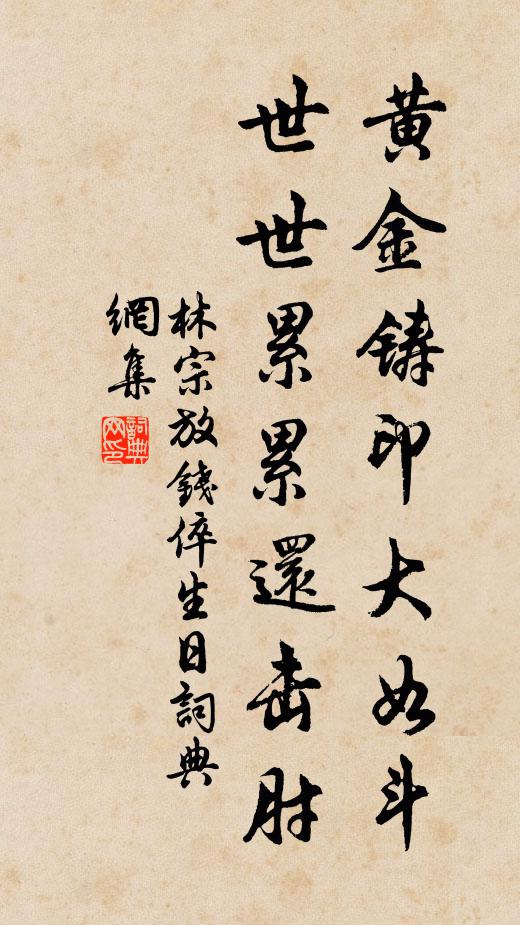 黄金铸印大如斗
世世累累還击肘
林宗放錢倅生日詞典
網集
詞典
网印